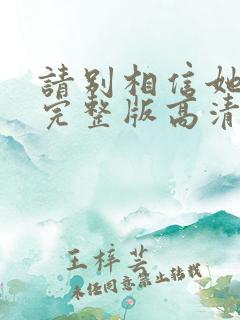 請别相信她
完整版高清
王梓芸
未经同意禁止转载